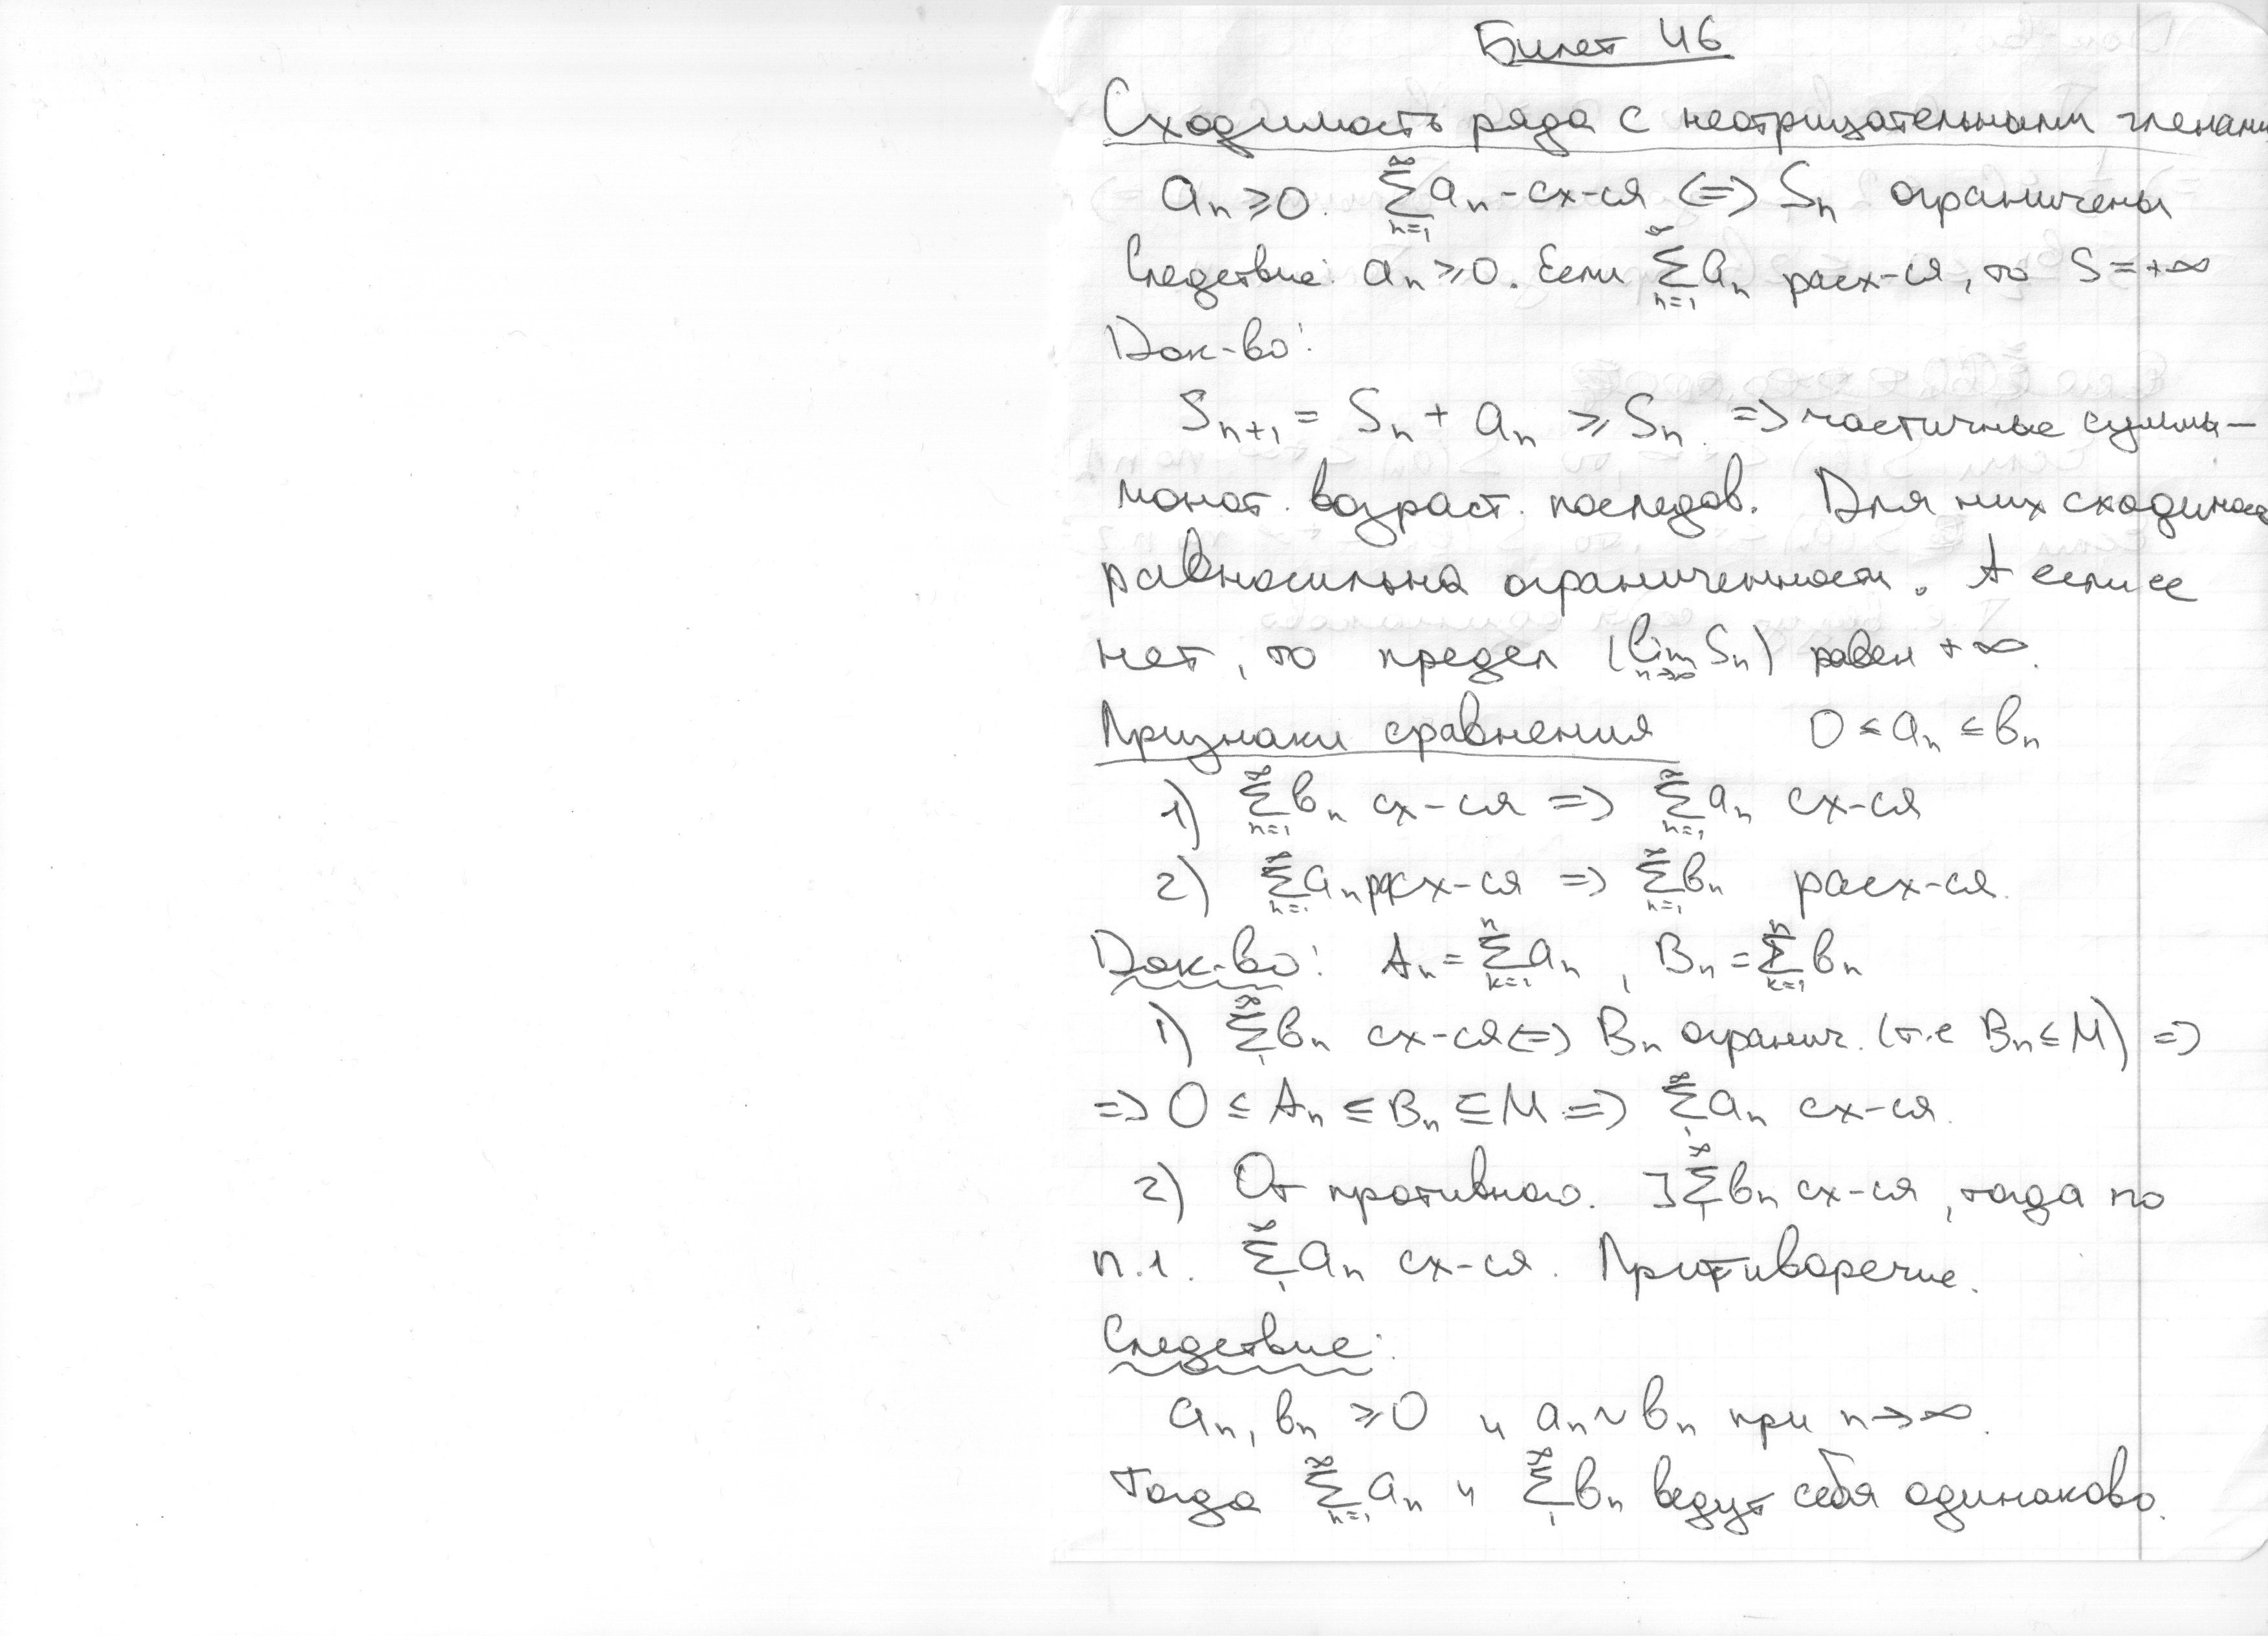 Билет 46
Сходимость ряда с неотрицательными членами
aₙ ≥ 0. ∑_{n=1}^{∞} aₙ - сх-ся <=> Sₙ ограничены
Следствие: aₙ ≥ 0. Если ∑_{n=1}^{∞} aₙ расх-ся, то S = +∞
Док-во:
Sₙ₊₁ = Sₙ + aₙ ≥ Sₙ => частичные суммы –
монот. возраст. последов. Для них сходимос
равносильна ограниченности. А если ее
нет, то предел (lim_{n→∞} Sₙ) равен +∞.
Признаки сравнения 0 ≤ aₙ ≤ bₙ
1) ∑_{n=1}^{∞} bₙ сх-ся => ∑_{n=1}^{∞} aₙ сх-ся
2) ∑_{n=1}^{∞} aₙ расх-ся => ∑_{n=1}^{∞} bₙ расх-ся.
Док-во: Aₙ = ∑_{k=1}^{n} aₙ, Bₙ = ∑_{k=1}^{n} bₙ
1) ∑_{1}^{∞} bₙ сх-ся <=> Bₙ огранич. (т.е Bₙ ≤ M) =>
=> 0 ≤ Aₙ ≤ Bₙ ≤ M => ∑_{1}^{∞} aₙ сх-ся.
2) От противного. ]∑_{1}^{∞} bₙ сх-ся, тогда по
п.1. ∑_{1}^{∞} aₙ сх-ся. Противоречие.
Следствие:
aₙ, bₙ ≥ 0 и aₙ ~ bₙ при n→∞.
Тогда ∑_{n=1}^{∞} aₙ и ∑_{1}^{∞} bₙ ведут себя одинаково.